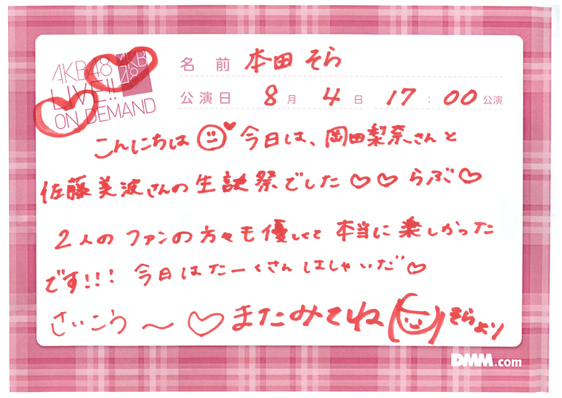 AKB48
LIVE!!
ON DEMAND
AKB
48
名前 本田そら
公演日 8月4日 17:00公演
こんにちは 今日は、岡田梨奈さんと
佐藤美波さんの生誕祭でした♡♡らぶ♡
2人のファンの方々も優しくて本当に楽しかった
です!!! 今日はたーくさんはしゃいだ♡
さいこう〜♡またみてね そらより
DMM.com